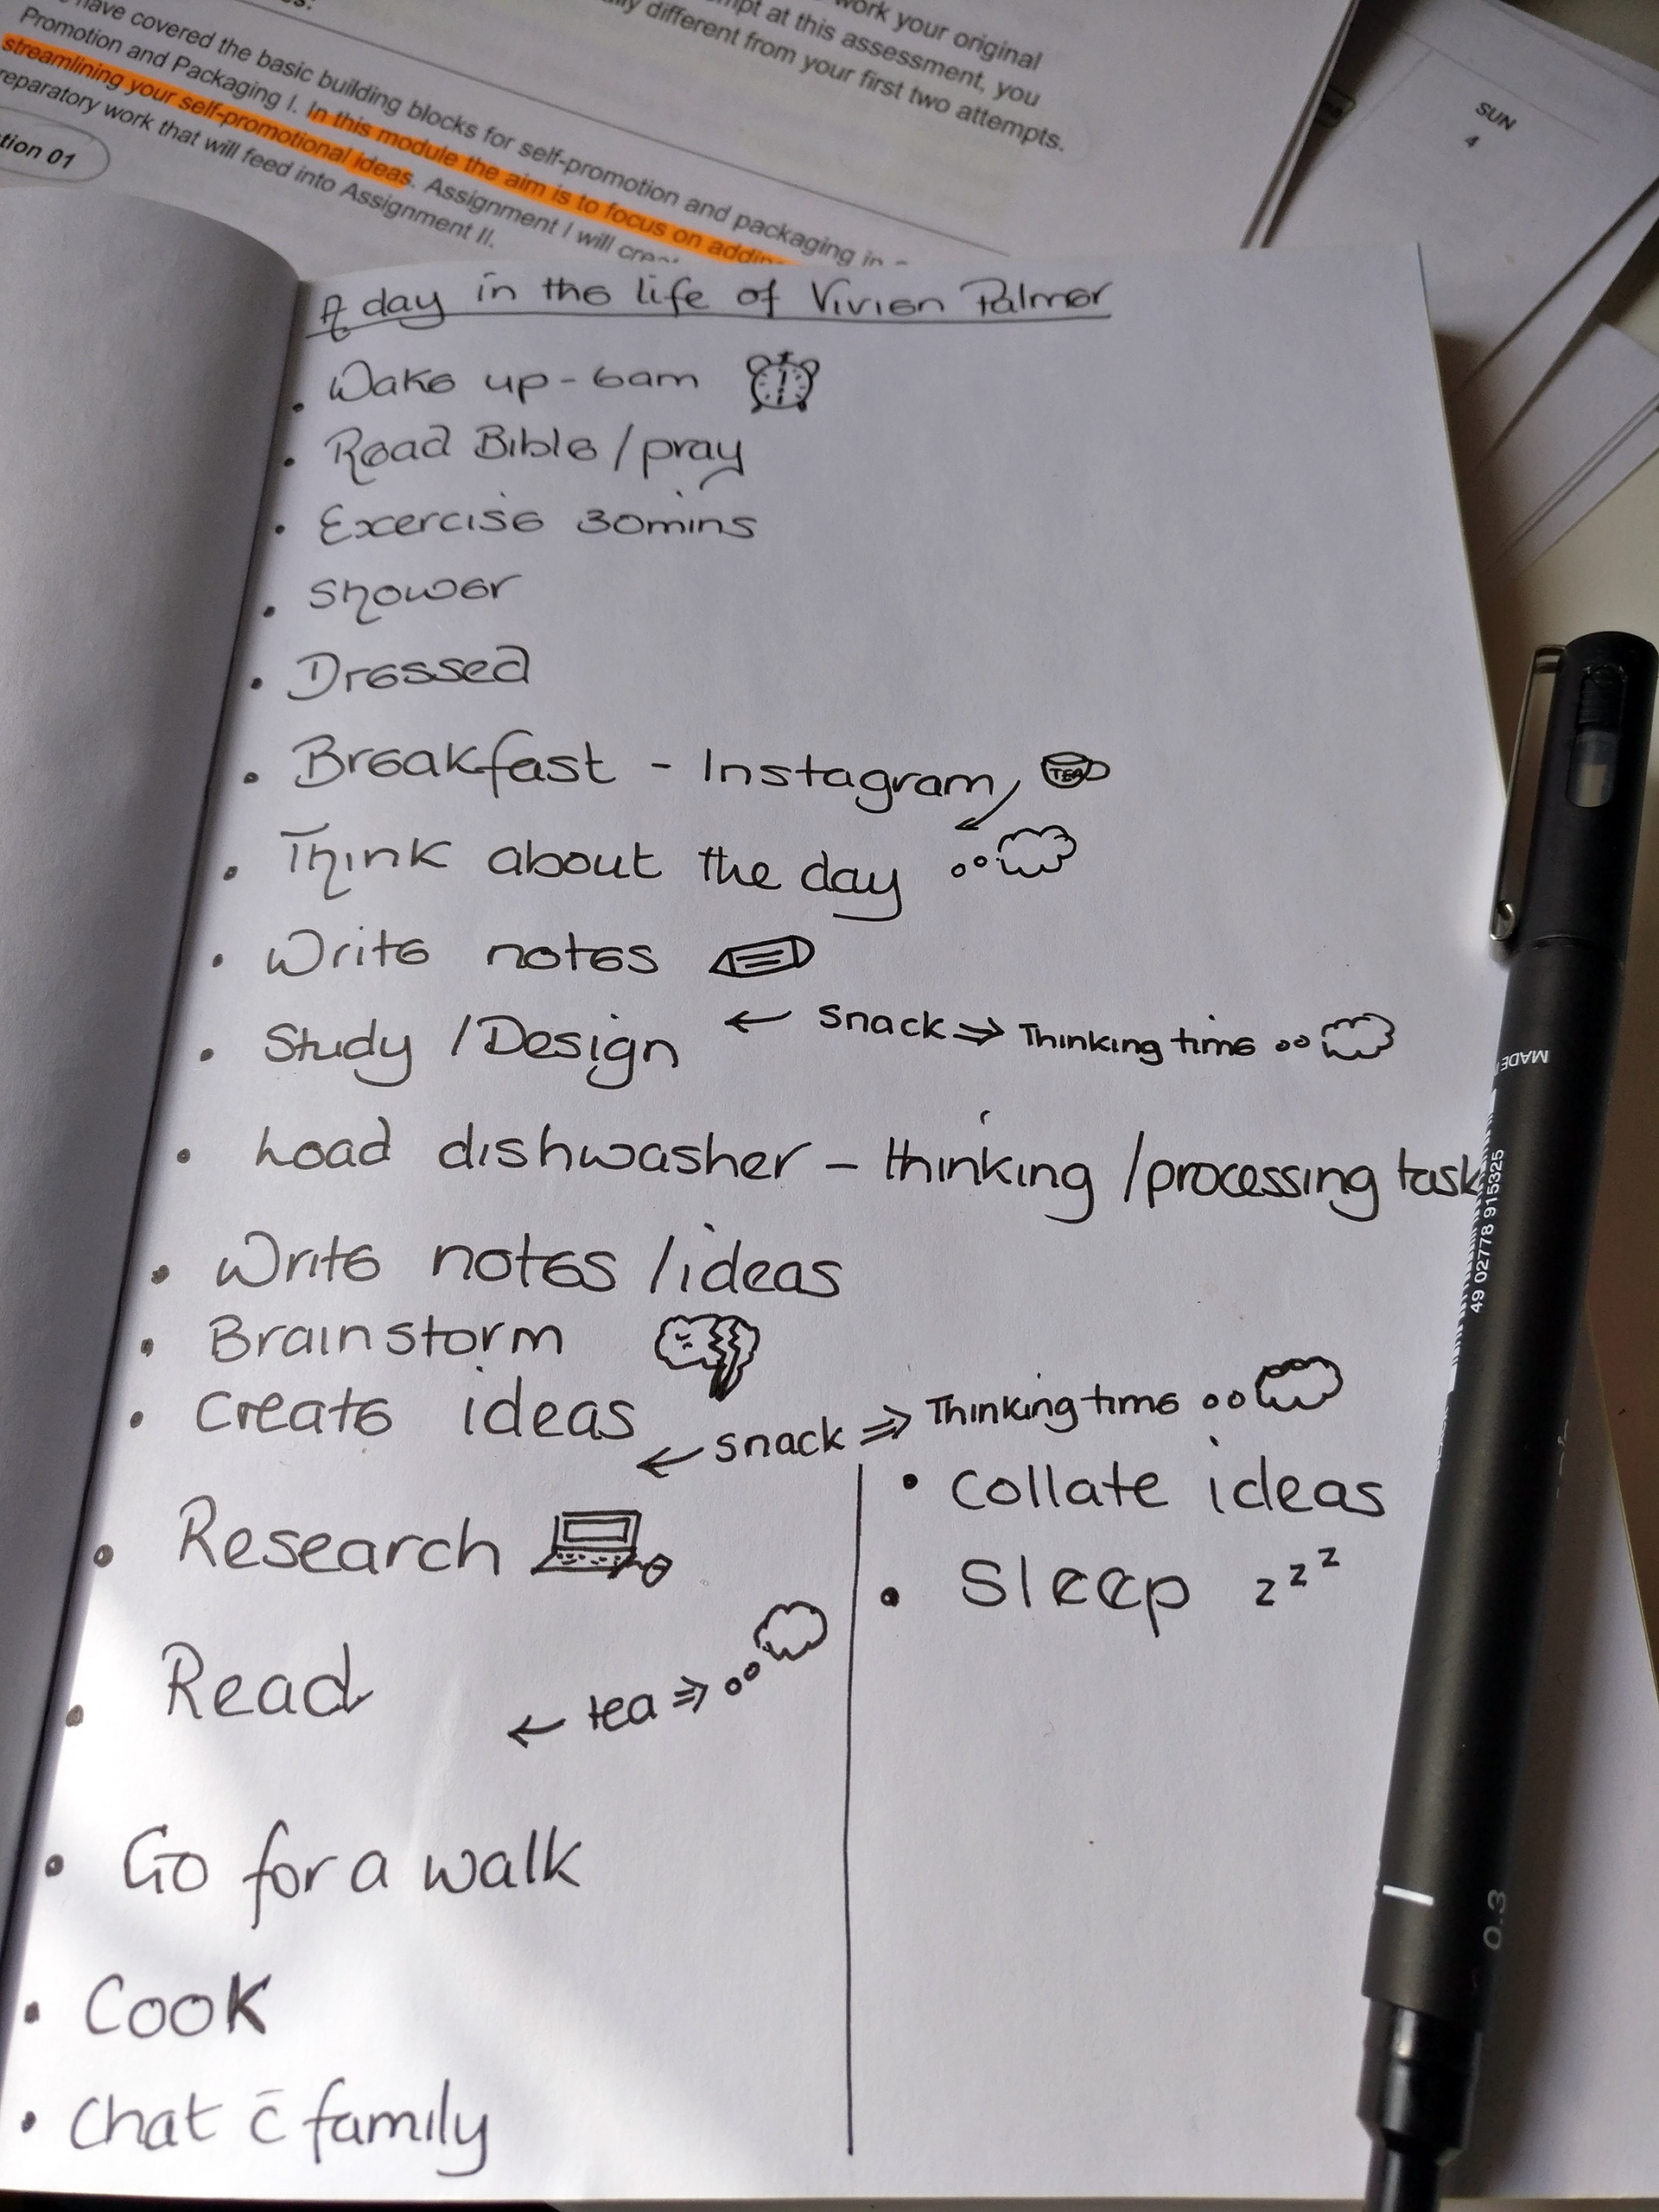 have covered the basic building blocks for self-promotion and packaging in
Promotion and Packaging I. In this module the aim is to focus on adding
streamlining your self-promotional ideas. Assignment I will
reparatory work that will feed into Assignment II.
tion 01
work your original
at this assessment, you
different from your first two attempts.
SUN
4
A day in the life of Vivien Palmer
• Wake up - 6am
• Read Bible / pray
• Exercise 30mins
• Shower
• Dressed
• Breakfast - Instagram TEA
• Think about the day
• Write notes
• Study / Design ← Snack ⇒ Thinking time
• Load dishwasher - thinking / processing task
• Write notes / ideas
• Brainstorm
• Create ideas ← snack ⇒ Thinking time
• Research
• Read ← tea ⇒
• Go for a walk
• Cook
• Chat c̄ family
• Collate ideas
• Sleep z z z
MADE
49 02778 915325
0.3